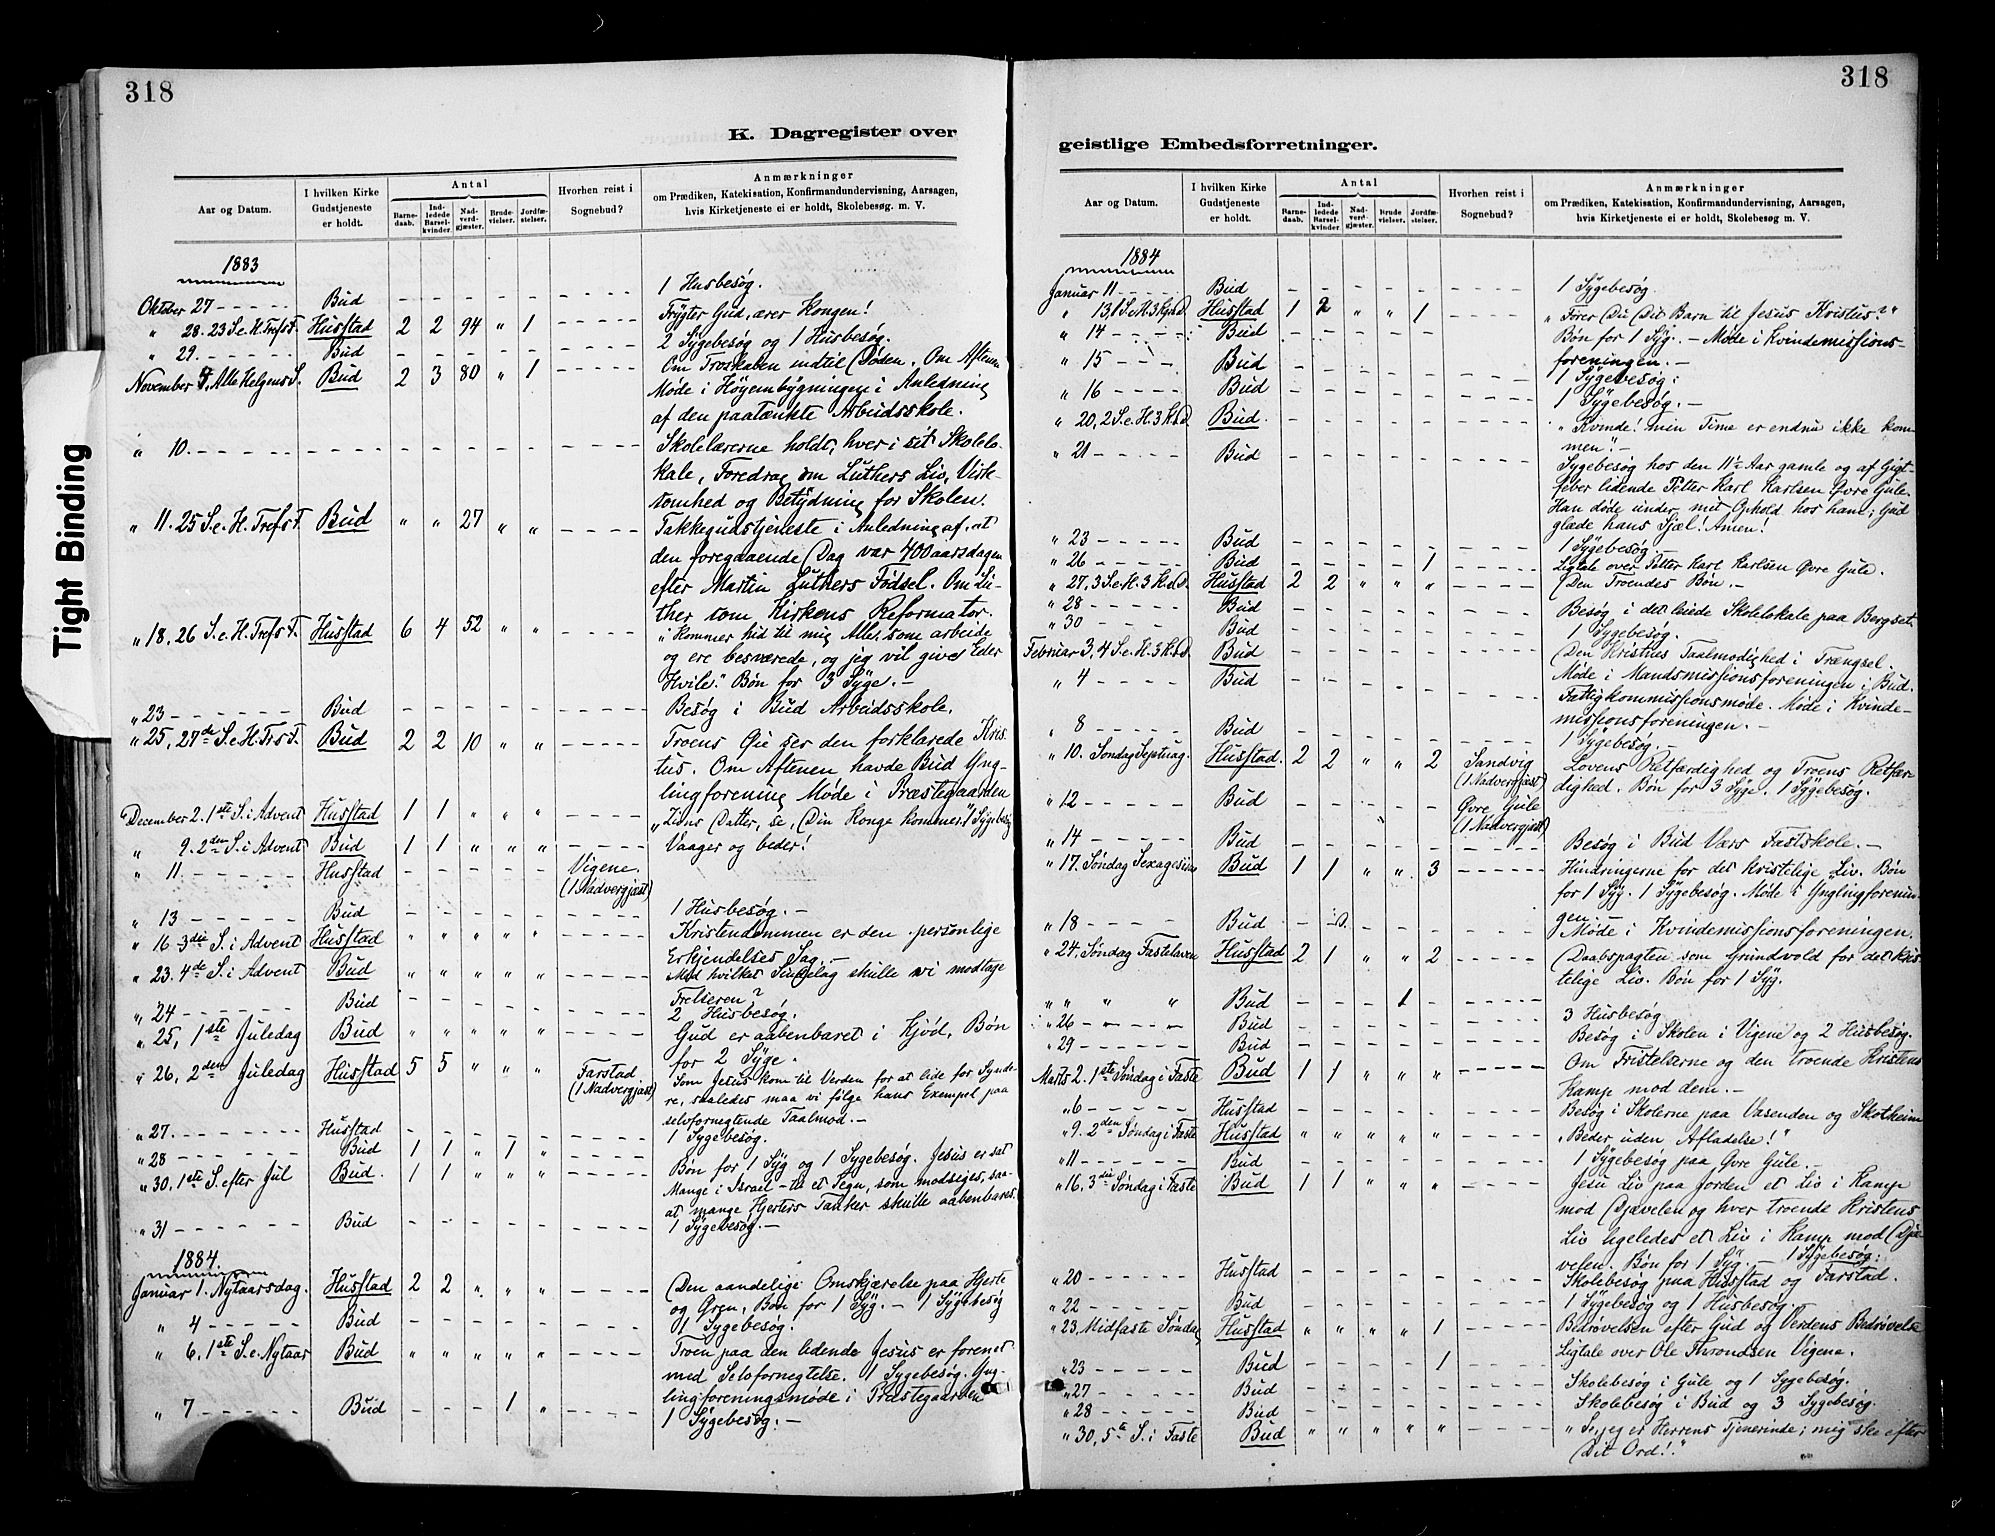 318
K. Dagregister over
Aar og Datum.
I hvilken Kirke Gudstjeneste er holdt.
Antal
Barne-daab.
Ind-ledede Barsel-kvinder.
Nad-verd-gjæster.
Brude-vielser.
Jordfæ-stelser.
Hvorhen reist i Sognebud?
Anmærkninger
om Prædiken, Katekisation, Konfirmandundervisning, Aarsagen, hvis Kirketjeneste ei er holdt, Skolebesøg m. V.
1883
Oktober 27 - - - - - Bud - - - - - 1 Husbesøg.
" 28. 23 S. e. H. Trefs F. Husstad 2 2 94 " 1 - - - - Frygter Gud, ærer Kongen!
" 29. - - - - - Bud - - - - - 2 Sygebesøg og 1 Husbesøg.
November 4, Alle Helgens S. Bud 2 3 80 " 1 - - - - Om Troskaben indtil Døden. Om Aftenen
Møde i Høyembygningen i Anledning
af den paatænkte Arbeidsskole.
" 10. - - - - - Skolelærerne holdt, hver i sit Skolelo-
kale, Foredrag om Luthers Liv, Virk-
somhed og Betydning for Skolen.
" 11. 25 S. e. H. Trefs F. Bud " " 27 " " - - - - Takkegudstjeneste i Anledning af, at
den foregaaende Dag var 400aarsdagen
efter Martin Luthers Fødsel. Om Lu-
ther som Kirkens Reformator.
" 18. 26 S. e. H. Trefs F. Husstad 6 4 52 " " - - - - "Kommer hid til mig Alle, som arbeide
og ere besværede, og jeg vil give Eder
Hvile." Bøn for 3 Syge. -
" 23 - - - - - Bud - - - - - Besøg i Bud Arbeidsskole.
" 25, 27de S. e. H. Trs F. Bud 2 2 10 " " - - - - Troens Øie ser den forklarede Kris-
tus. Om Aftenen havde Bud Yng-
lingforening Møde i Præstegaarden
December 2. 1ste S. i Advent Husstad 1 1 " " " - - - - "Zions Datter, se, Din Konge kommer." 1 Sygebesøg
" 9. 2den S. i Advent Bud 1 1 " " " - - - - Vaager og beder!
" 11 - - - - - Husstad - - - - - Vigene.
(1 Nadvergjæst)
" 13 - - - - - Bud - - - - - 1 Husbesøg. -
" 16 3die S. i Advent Husstad " " " " " - - - - Kristendommen er den personlige
Erkjendelses Sag. -
" 23. 4de S. i Advent Bud " " " " " - - - - Med hvilket Sindelag skulle vi modtage
Frelseren?
" 24 - - - - - Bud - - - - - 2 Husbesøg.
" 25, 1ste Juledag Bud " " " " " - - - - Gud er aabenbaret i Kjød. Bøn
for 2 Syge.
" 26, 2den Juledag Husstad 5 5 " " " Farstad Som Jesus kom til Verden for at lide for Synde-
(1 Nadvergjæst) re, saaledes maa vi følge hans Exempel paa
selvfornegtende Taalmod. -
" 27. - - - - - Husstad - - - - - 1 Sygebesøg.
" 28 - - - - - Bud 1 1 " 1 " - - - -
" 30. 1ste S. efter Jul Bud. 1 1 " " " - - - - Bøn for 1 Syg og 1 Sygebesøg. Jesus er sat
Mange i Israel - til et Tegn, som modsiges, saa-
at mange Hjerters Tanker skulle aabenbares.
" 31 - - - - - Bud - - - - - 1 Sygebesøg. -
1884.
Januar 1. Nytaarsdag. Husstad 2 2 " " " - - - - Den aandelige Omskjærelse paa Hjerte
og Øren. Bøn for 1 Syg. - 1 Sygebesøg
" 4 - - - - - Bud - - - - - 1 Sygebesøg.
" 6. 1ste S. e. Nytaar Bud " " " " " - - - - Troen paa den lidende Jesus er forenet
med Selvfornegtelse. 1 Sygebesøg. Yng-
lingforeningsmøde i Præstegaarden
" 7 - - - - - Bud - - - 1 " - - - - 1 Sygebesøg. -
318
geistlige Embedsforretninger.
Aar og Datum.
I hvilken Kirke Gudstjeneste er holdt.
Antal
Barne-daab.
Ind-ledede Barsel-kvinder.
Nad-verd-gjæster.
Brude-vielser.
Jordfæ-stelser.
Hvorhen reist i Sognebud?
Anmærkninger
om Prædiken, Katekisation, Konfirmandundervisning, Aarsagen, hvis Kirketjeneste ei er holdt, Skolebesøg m. V.
1884
Januar 11 - - - - - Bud - - - - - 1 Sygebesøg.
" 13, 1 S. e. H. 3 K. d. Husstad 1 2 " " 1 - - - - "Fører Du Dit Barn til Jesus Kristus?"
" 14 - - - - - Bud - - - - - Bøn for 1 Syg. - Møde i Kvindemissions-
foreningen. -
" 15 - - - - - Bud - - - - - 1 Sygebesøg.
" 16 - - - - - Bud - - - - - 1 Sygebesøg. -
" 20, 2 S. e. H. 3 K. d. Bud. - - - - - "Kvinde! min Time er endnu ikke kom-
men." -
" 21 - - - - - Bud - - - - - Sygebesøg hos den 11½ Aar gamle og af Gigt-
feber lidende Petter Karl Karlsen Øvre Gule.
Han døde under mit Ophold hos ham; Gud
glæde hans Sjæl! Amen!
" 23 - - - - - Bud - - - - - 1 Sygebesøg -
" 26 - - - - - Bud - - - - 1 - - - - Ligtale over Petter Karl Karlsen Øvre Gule.
" 27, 3 S. e. H. 3 K. d. Husstad 2 2 " " " - - - - Den Troendes Bøn. -
" 28 - - - - - Bud - - - - - Besøg i det leiede Skolelokale paa Bergset.
" 30 - - - - - Bud - - - - - 1 Sygebesøg.
Februar 3, 4 S. e. H. 3 K. d. Bud - - - - - Den Kristnes Taalmodighed i Trængsel.
" 4 - - - - - Bud - - - - - Møde i Mandsmissionsforeningen i Bud.
Fattigkommissionsmøde. Møde i Kvinde-
missionsforeningen. -
" 8 - - - - - Bud - - - - - 1 Sygebesøg. -
" 10. Søndag Septuag. Husstad. 2 2 " " 2 Sandvig Lovens Retfærdighed og Troens Retfær-
(1 Nadvergjæst) dighed. Bøn for 3 Syge. 1 Sygebesøg.
" 12 - - - - - Bud - - - - - Øvre Gule
(1 Nadvergjæst)
" 14 - - - - - Bud - - - - - Besøg i Bud Værs Fastskole. -
" 17. Søndag Sexagesima Bud 1 1 " " 3 - - - - Hindringerne for det kristelige Liv. Bøn
for 1 Syg. 1 Sygebesøg. Møde i Ynglingforenin-
gen.
" 18 - - - - Bud - - - - - Møde i Kvindemissionsforeningen.
" 24. Søndag Fastelavn Husstad 2 1 " " 2 - - - - Daabspagten som Grundvold for det kris-
telige Liv. Bøn for 1 Syg.
" " " " Bud - - - 1 - - - - -
" 26 - - - - Bud - - - - - 3 Husbesøg
" 29 - - - - - Bud - - - - - Besøg i Skolen i Vigene og 2 Husbesøg.
Marts 2. 1ste Søndag i Faste Bud 1 1 " " " - - - - Om Fristelserne og den troende Kristens
Kamp mod dem. -
" 6 - - - - - Husstad - - - - - Besøg i Skolerne paa Vasenden og Skotheim
" 9. 2den Søndag i Faste Husstad " " " " " - - - - "Beder uden Afladelse!"
" 11 - - - - - Bud - - - - - 1 Sygebesøg paa Øvre Gule. -
" 16, 3die Søndag i Faste Bud 1 1 " " " - - - - Jesu Liv paa Jorden et Liv i Kamp
mod Djævelen og hver troende Kristens
Liv ligeledes et Liv i Kamp mod Djæ-
velen. Bøn for 1 Syg. - 1 Sygebesøg.
" 20 - - - - - Husstad - - - - - Skolebesøg paa Husstad og Farstad.
" 22 - - - - - Bud - - - - - 1 Sygebesøg og 1 Husbesøg -
" 23, Midfaste Søndag Husstad " " " " 1 - - - - Bedrøvelsen efter Gud og Verdens Bedrøvelse
" 23 - - - - - Bud - - - - 1 - - - - Ligtale over Ole Throndsen Vigene.
" 27 - - - - - Bud - - - - - Skolebesøg i Gule og 1 Sygebesøg.
" 28 - - - - - Bud - - - - - Skolebesøg i Bud og 3 Sygebesøg.
" 30, 5te S. i Faste Bud " " " " " - - - - "Se, jeg er Herrens Tjenerinde; mig ske efter
Dit Ord!"
Tight Binding